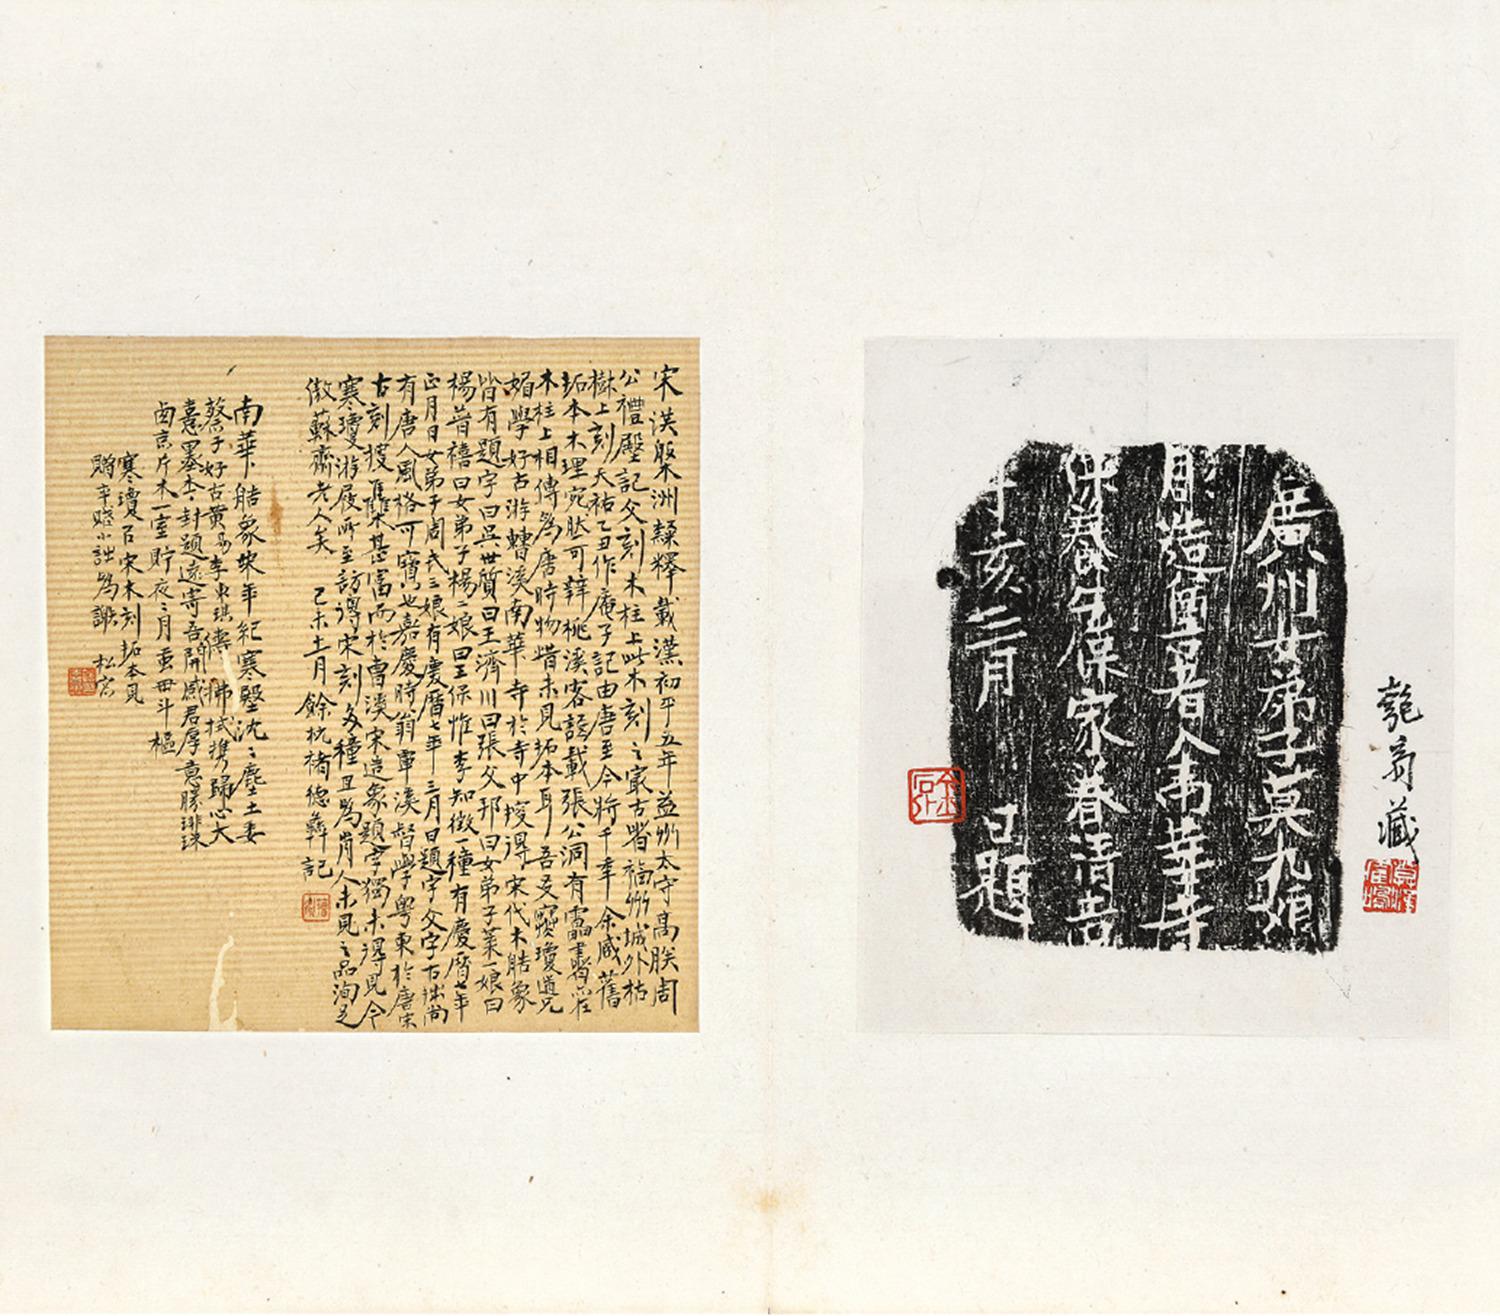 匏翁藏
廣州女弟子莫九娘
彫造尊者入南華寺
供養年保家眷清吉
亥三月 日題
宋洪槃洲隸釋載漢初平五年益州太守高朕周
公禮殿記文刻木柱上此木刻之最古者福州城外枯
樹上刻天祐乙丑作庵子記由唐至今將千年余咸舊
拓本木理宛然可辨桃溪客語載張公洞有靁書在
木柱上相傳為唐時物惜未見拓本耳吾友寒瓊道兄
媚學好古游曹溪南華寺於寺中搜得宋代木造象
皆有題字曰吳世質曰王濟川曰張文邦曰女弟子葉一娘曰
楊普禧曰女弟子楊二娘曰王保惟李知徵一種有慶曆七年
正月日女弟子周氏三娘有慶曆七年三月日題字文字古拙尚
有唐人風格可寶也嘉慶時翁覃溪督學粵東於唐宋
古刻搜集甚富而於曹溪宋造象題字獨未得見今
寒瓊游屐所至訪得宋刻多種且為前人未見之品洵足
傲蘇齋老人矣 己未十一月 餘杭褚德彝記
南華造象埭年紀寒壂沈沈塵土委
蔡子好古黃易李東琪傳拂拭攜歸心大
憙墨本一封題遠寄吾開感君厚意勝琲珠
鹵京片木一室貯夜夜月
寒瓊召宋木刻拓本見
贈辛賤小詘為謝 松窗